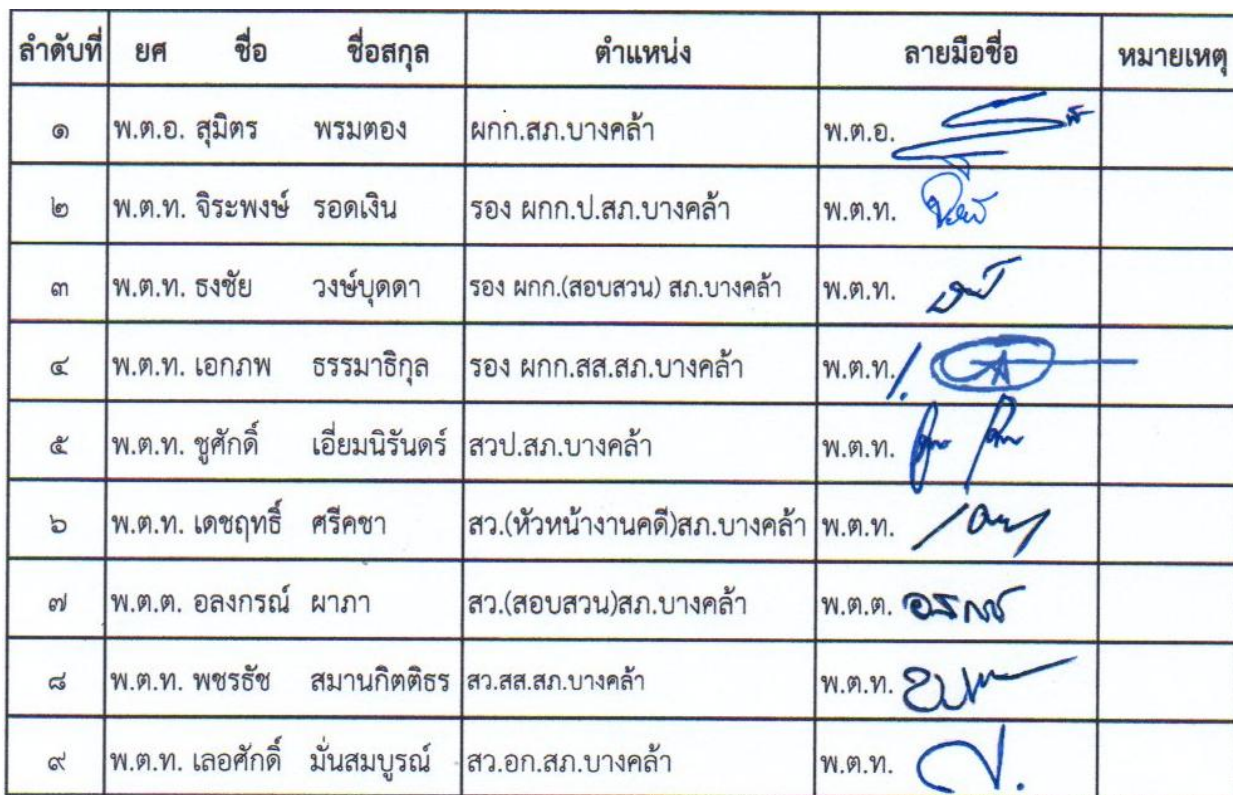 ลำดับที่ ยศ ชื่อ ชื่อสกุล ตำแหน่ง ลายมือชื่อ หมายเหตุ
๑ พ.ต.อ. สุมิตร พรมตอง ผกก.สภ.บางคล้า พ.ต.อ.
๒ พ.ต.ท. จิระพงษ์ รอดเงิน รอง ผกก.ป.สภ.บางคล้า พ.ต.ท.
๓ พ.ต.ท. ธงชัย วงษ์บุดดา รอง ผกก.(สอบสวน) สภ.บางคล้า พ.ต.ท.
๔ พ.ต.ท. เอกภพ ธรรมาธิกุล รอง ผกก.สส.สภ.บางคล้า พ.ต.ท.
๕ พ.ต.ท. ชูศักดิ์ เอี่ยมนิรันดร์ สวป.สภ.บางคล้า พ.ต.ท.
๖ พ.ต.ท. เดชฤทธิ์ ศรีคชา สว.(หัวหน้างานคดี)สภ.บางคล้า พ.ต.ท.
๗ พ.ต.ต. อลงกรณ์ ผาภา สว.(สอบสวน)สภ.บางคล้า พ.ต.ต.
๘ พ.ต.ท. พชรธัช สมานกิตติธร สว.สส.สภ.บางคล้า พ.ต.ท.
๙ พ.ต.ท. เลอศักดิ์ มั่นสมบูรณ์ สว.อก.สภ.บางคล้า พ.ต.ท.